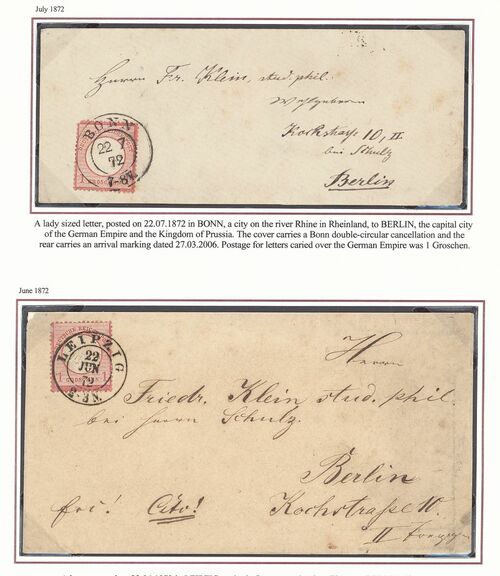 July 1872
Herrn Fr. Klein, stud. phil.
Wohlgeboren
Kochstraße 10, II
bei Schulz
Berlin
BONN
22 7
72
7-8V.
1 GROSCHEN
A lady sized letter, posted on 22.07.1872 in BONN, a city on the river Rhine in Rheinland, to BERLIN, the capital city
of the German Empire and the Kingdom of Prussia. The cover carries a Bonn double-circular cancellation and the
rear carries an arrival marking dated 27.03.2006. Postage for letters caried over the German Empire was 1 Groschen.
June 1872
LEIPZIG
22
JUN
72
1 GROSCHEN 1
Herrn
Friedr. Klein stud. phil.
bei Herrn Schulz.
Berlin
frei! Cito! Kochstraße 10.
II